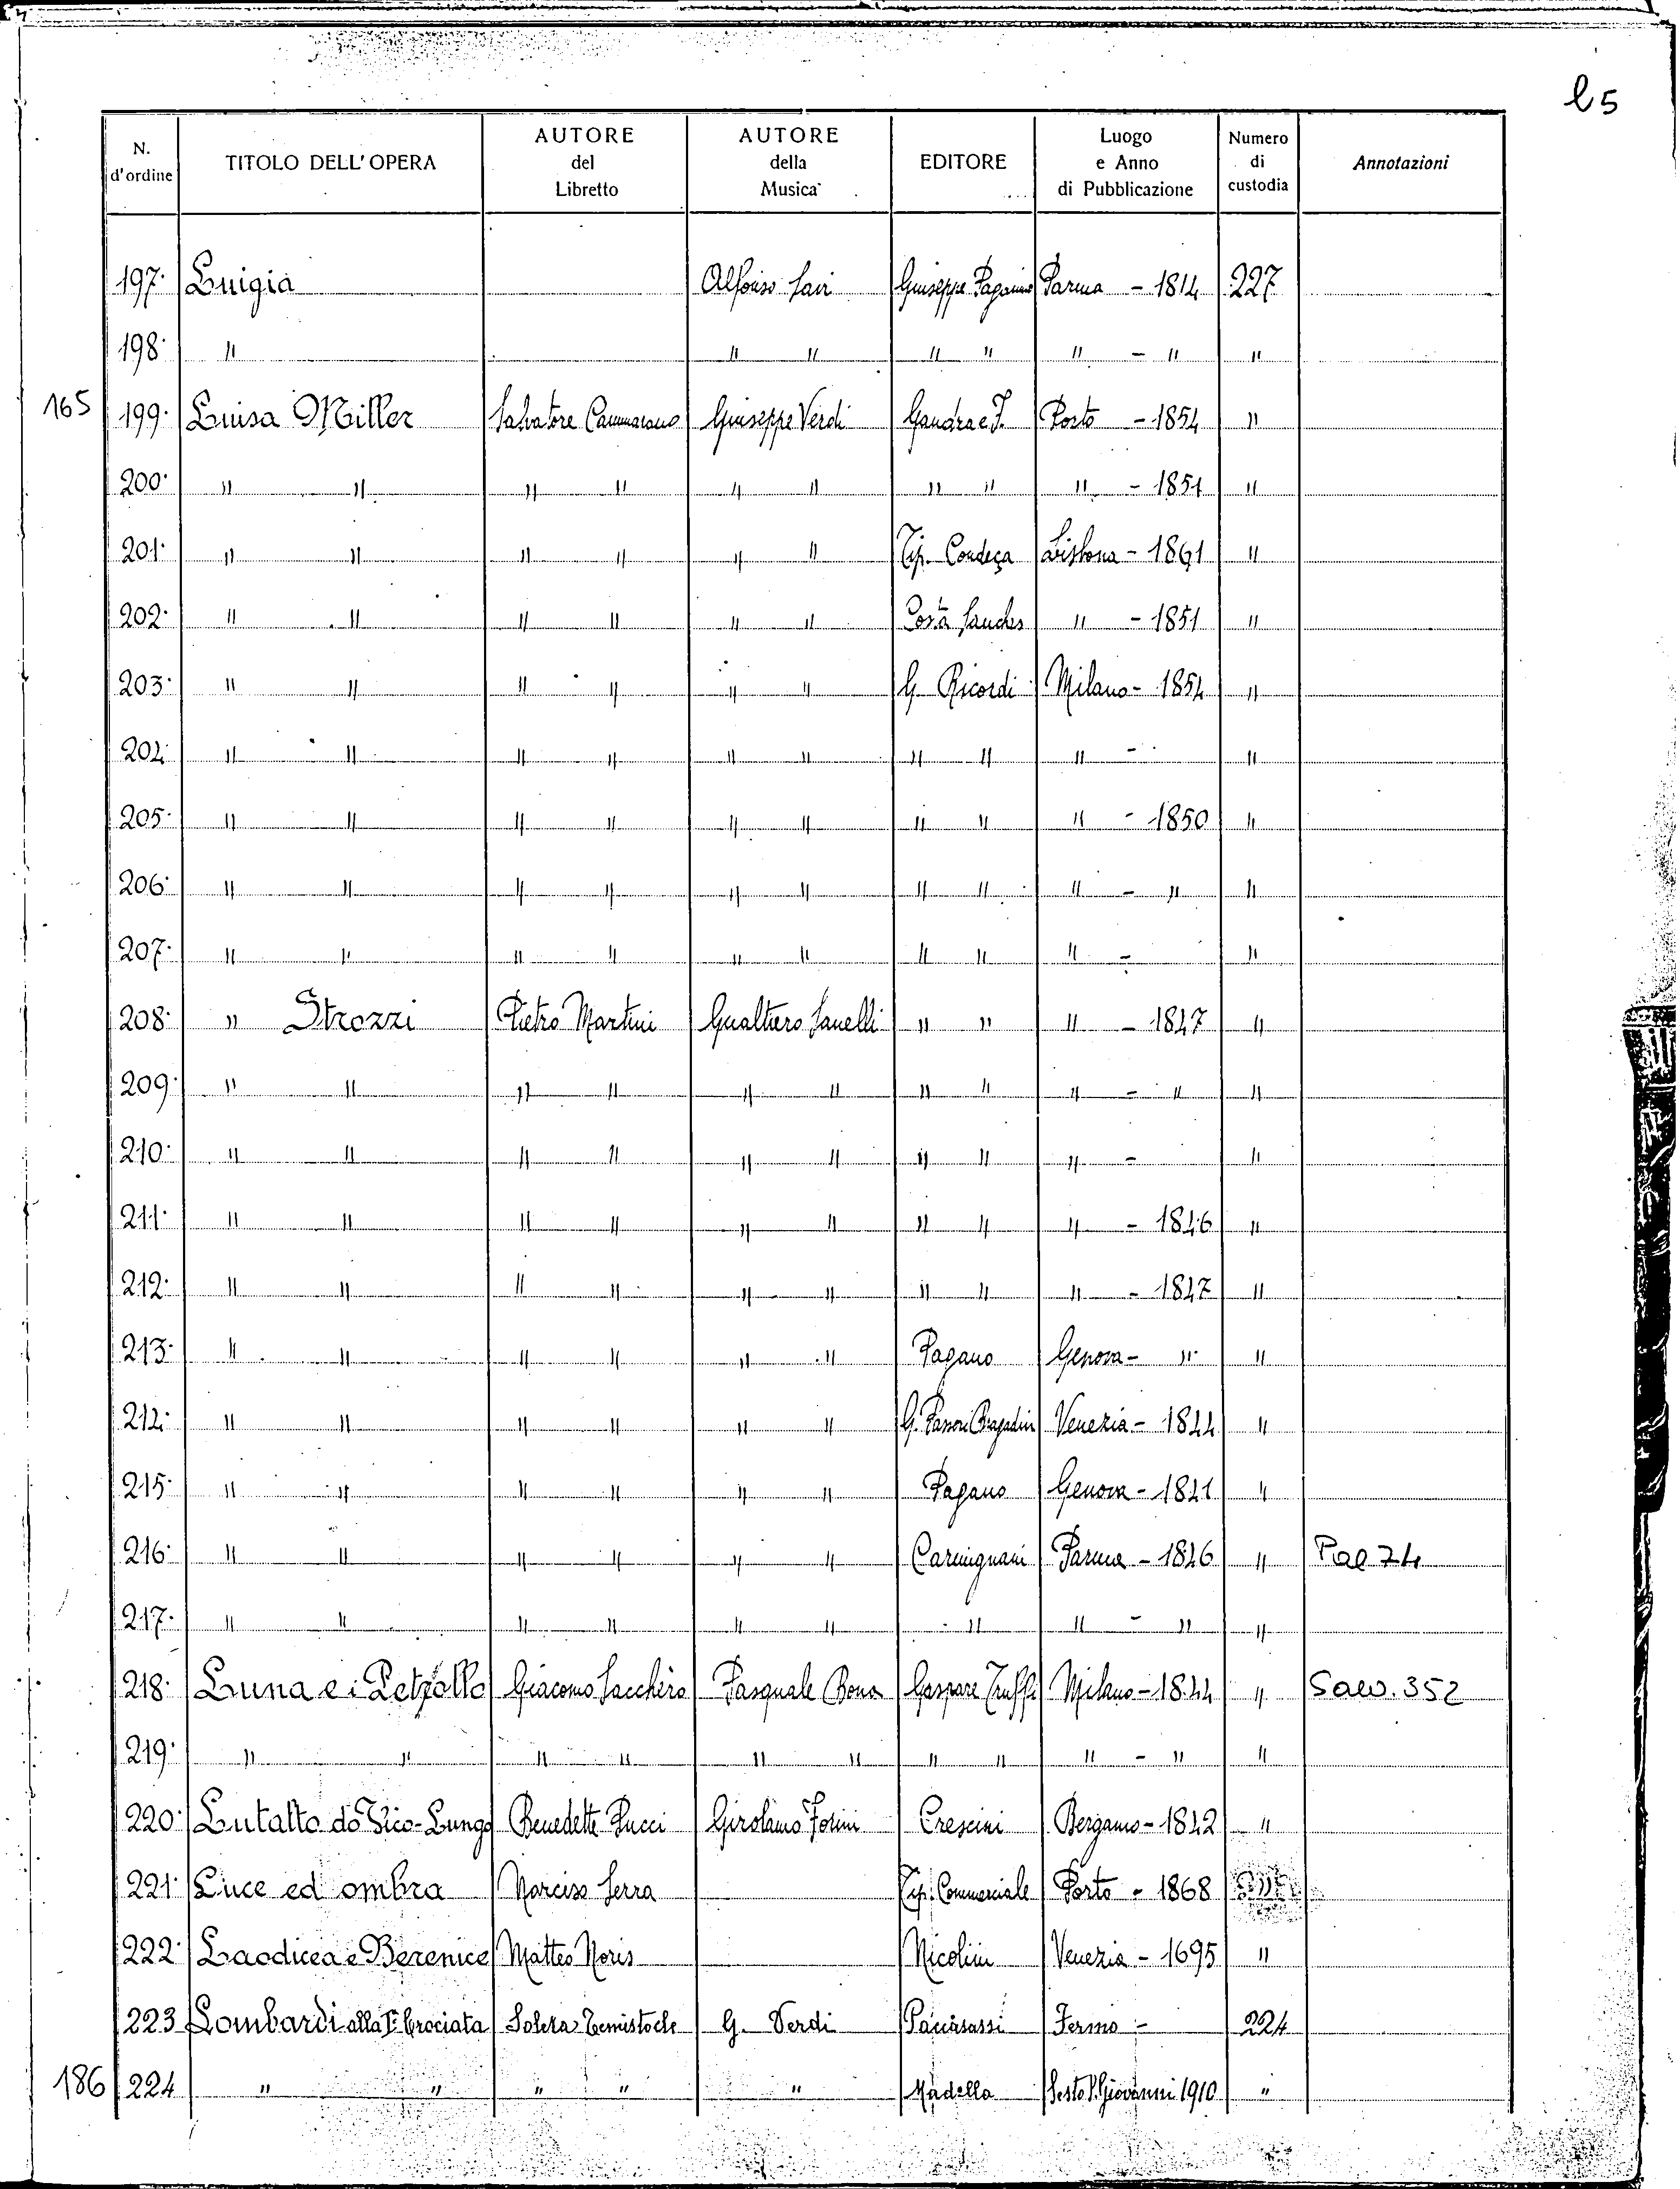 l5
N. d'ordine | TITOLO DELL'OPERA | AUTORE del Libretto | AUTORE della Musica | EDITORE | Luogo e Anno di Pubblicazione | Numero di custodia | Annotazioni
197· Luigia Alfonso Savi Giuseppe Paganino Parma - 1814 227
198· " " " " " " - " "
165 199· Luisa Miller Salvatore Cammarano Giuseppe Verdi Gandra e F. Porto - 1854 "
200· " " " " " " " " " - 1851 "
201· " " " " " " Tip. Condeça Lisbona - 1861 "
202· " " " " " " Costa Sanches " - 1851 "
203· " " " " " " G. Ricordi Milano - 1854 "
204· " " " " " " " " " - "
205· " " " " " " " " " - 1850 "
206· " " " " " " " " " - " "
207· " " " " " " " " " - "
208· " Strozzi Pietro Martini Gualtiero Sanelli " " " - 1847 "
209· " " " " " " " " " - " "
210· " " " " " " " " " - "
211· " " " " " " " " " - 1846 "
212· " " " " " " " " " - 1847 "
213· " " " " " " Pagano Genova - " "
214· " " " " " " G. Passeri Bragadin Venezia - 1844 "
215· " " " " " " Pagano Genova - 1841 "
216· " " " " " " Carmignani Parma - 1846 " Pal 74
217· " " " " " " " " - " "
218· Luna e i Giacomo Sacchèro Pasquale Bona Gaspare Truffi Milano - 1844 " Salv. 352
219· " " " " " " " " " - " "
220· Lutalto do Vico-Lungo Benedette Pucci Girolamo Forini Crescini Bergamo - 1842 "
221· Luce ed ombra Narciso Serra Tip. Commerciale Porto - 1868
222· Laodicea e Berenice Matteo Noris Nicolini Venezia - 1695 "
223 Lombardi alla Iª Crociata Solera Temistocle G. Verdi Paccasassi Fermo - 224
186 224 " " " " " Madella Sesto S. Giovanni 1910 "